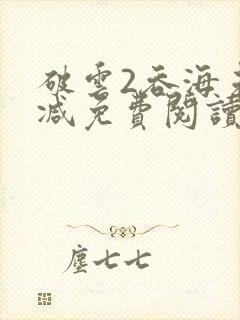 破雲2吞海未
減免費閱讀
塵七七